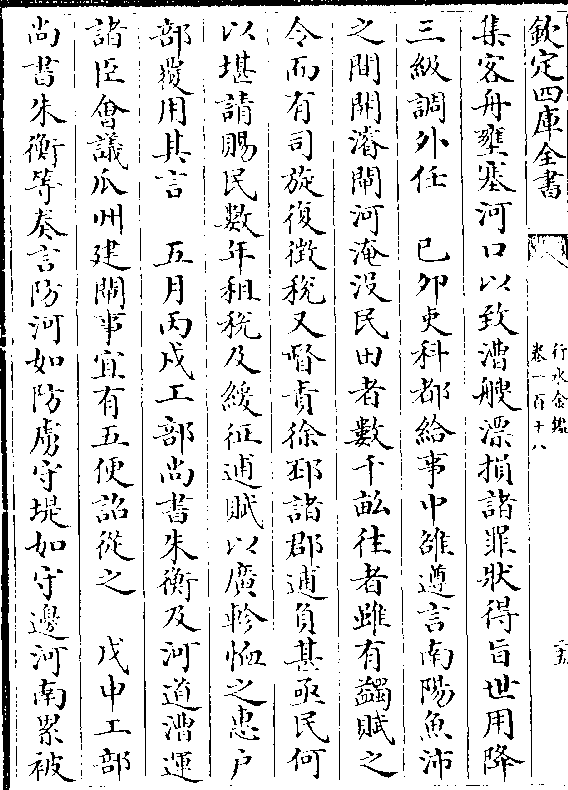 欽定四庫全書
行水金鑑
卷一百十八
二十五
集客舟壅塞河口以致漕艘漂損諸罪狀得旨世用降
三級調外任　己卯吏科都給事中雒遵言南陽魚沛
之間開濬閘河淹没民田者數千畝往者雖有蠲賦之
令而有司旋復徵稅又督責徐邳諸郡逋負甚亟民何
以堪請賜民數年租稅及緩征逋賦以廣軫恤之惠户
部覆用其言　五月丙戌工部尚書朱衡及河道漕運
諸臣會議瓜州建閘事宜有五便詔從之　戊申工部
尚書朱衡等奏言防河如防虜守堤如守邊河南累被